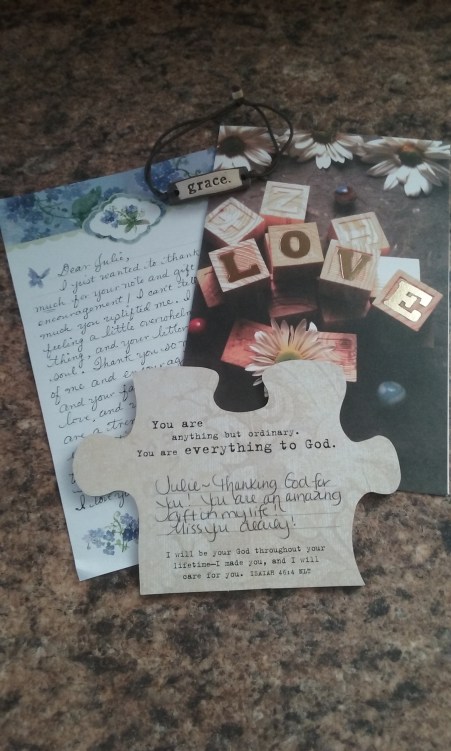 grace.
LOVE
Dear Julie,
I just wanted to thank
much for your note and gift
encouragement! I can't tell
much you uplifted me. I
feeling a little overwhelm
thing, and your letter
soul. Thank you so m
of me and encourag
and your f
love, and
are a tre
I love yo
You are
anything but ordinary.
You are everything to God.
Julie~ Thanking God for
you! You are an amazing
gift in my life!!
Miss you dearly!
I will be your God throughout your
lifetime—I made you, and I will
care for you. ISAIAH 46:4 NLT